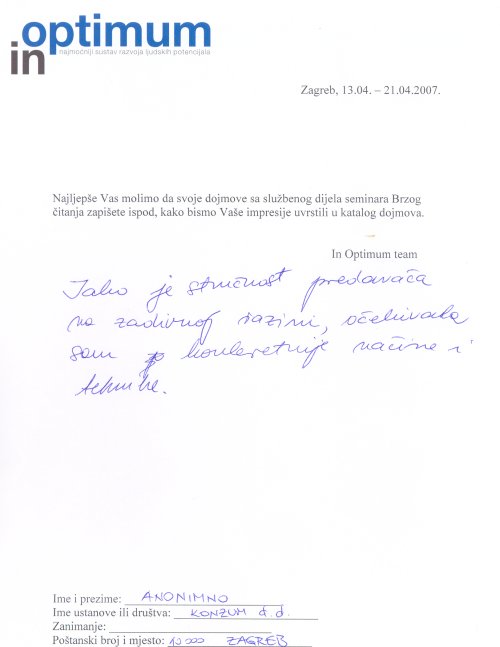 in optimum
najmoćniji sustav razvoja ljudskih potencijala
Zagreb, 13.04. – 21.04.2007.
Najljepše Vas molimo da svoje dojmove sa službenog dijela seminara Brzog
čitanja zapišete ispod, kako bismo Vaše impresije uvrstili u katalog dojmova.
In Optimum team
Iako je stručnost predavača
na zadivnoj razini, očekivala
sam konkretnije načine i
tehnike.
Ime i prezime: ANONIMNO
Ime ustanove ili društva: KONZUM d.d.
Zanimanje:
Poštanski broj i mjesto: 10 000 ZAGREB